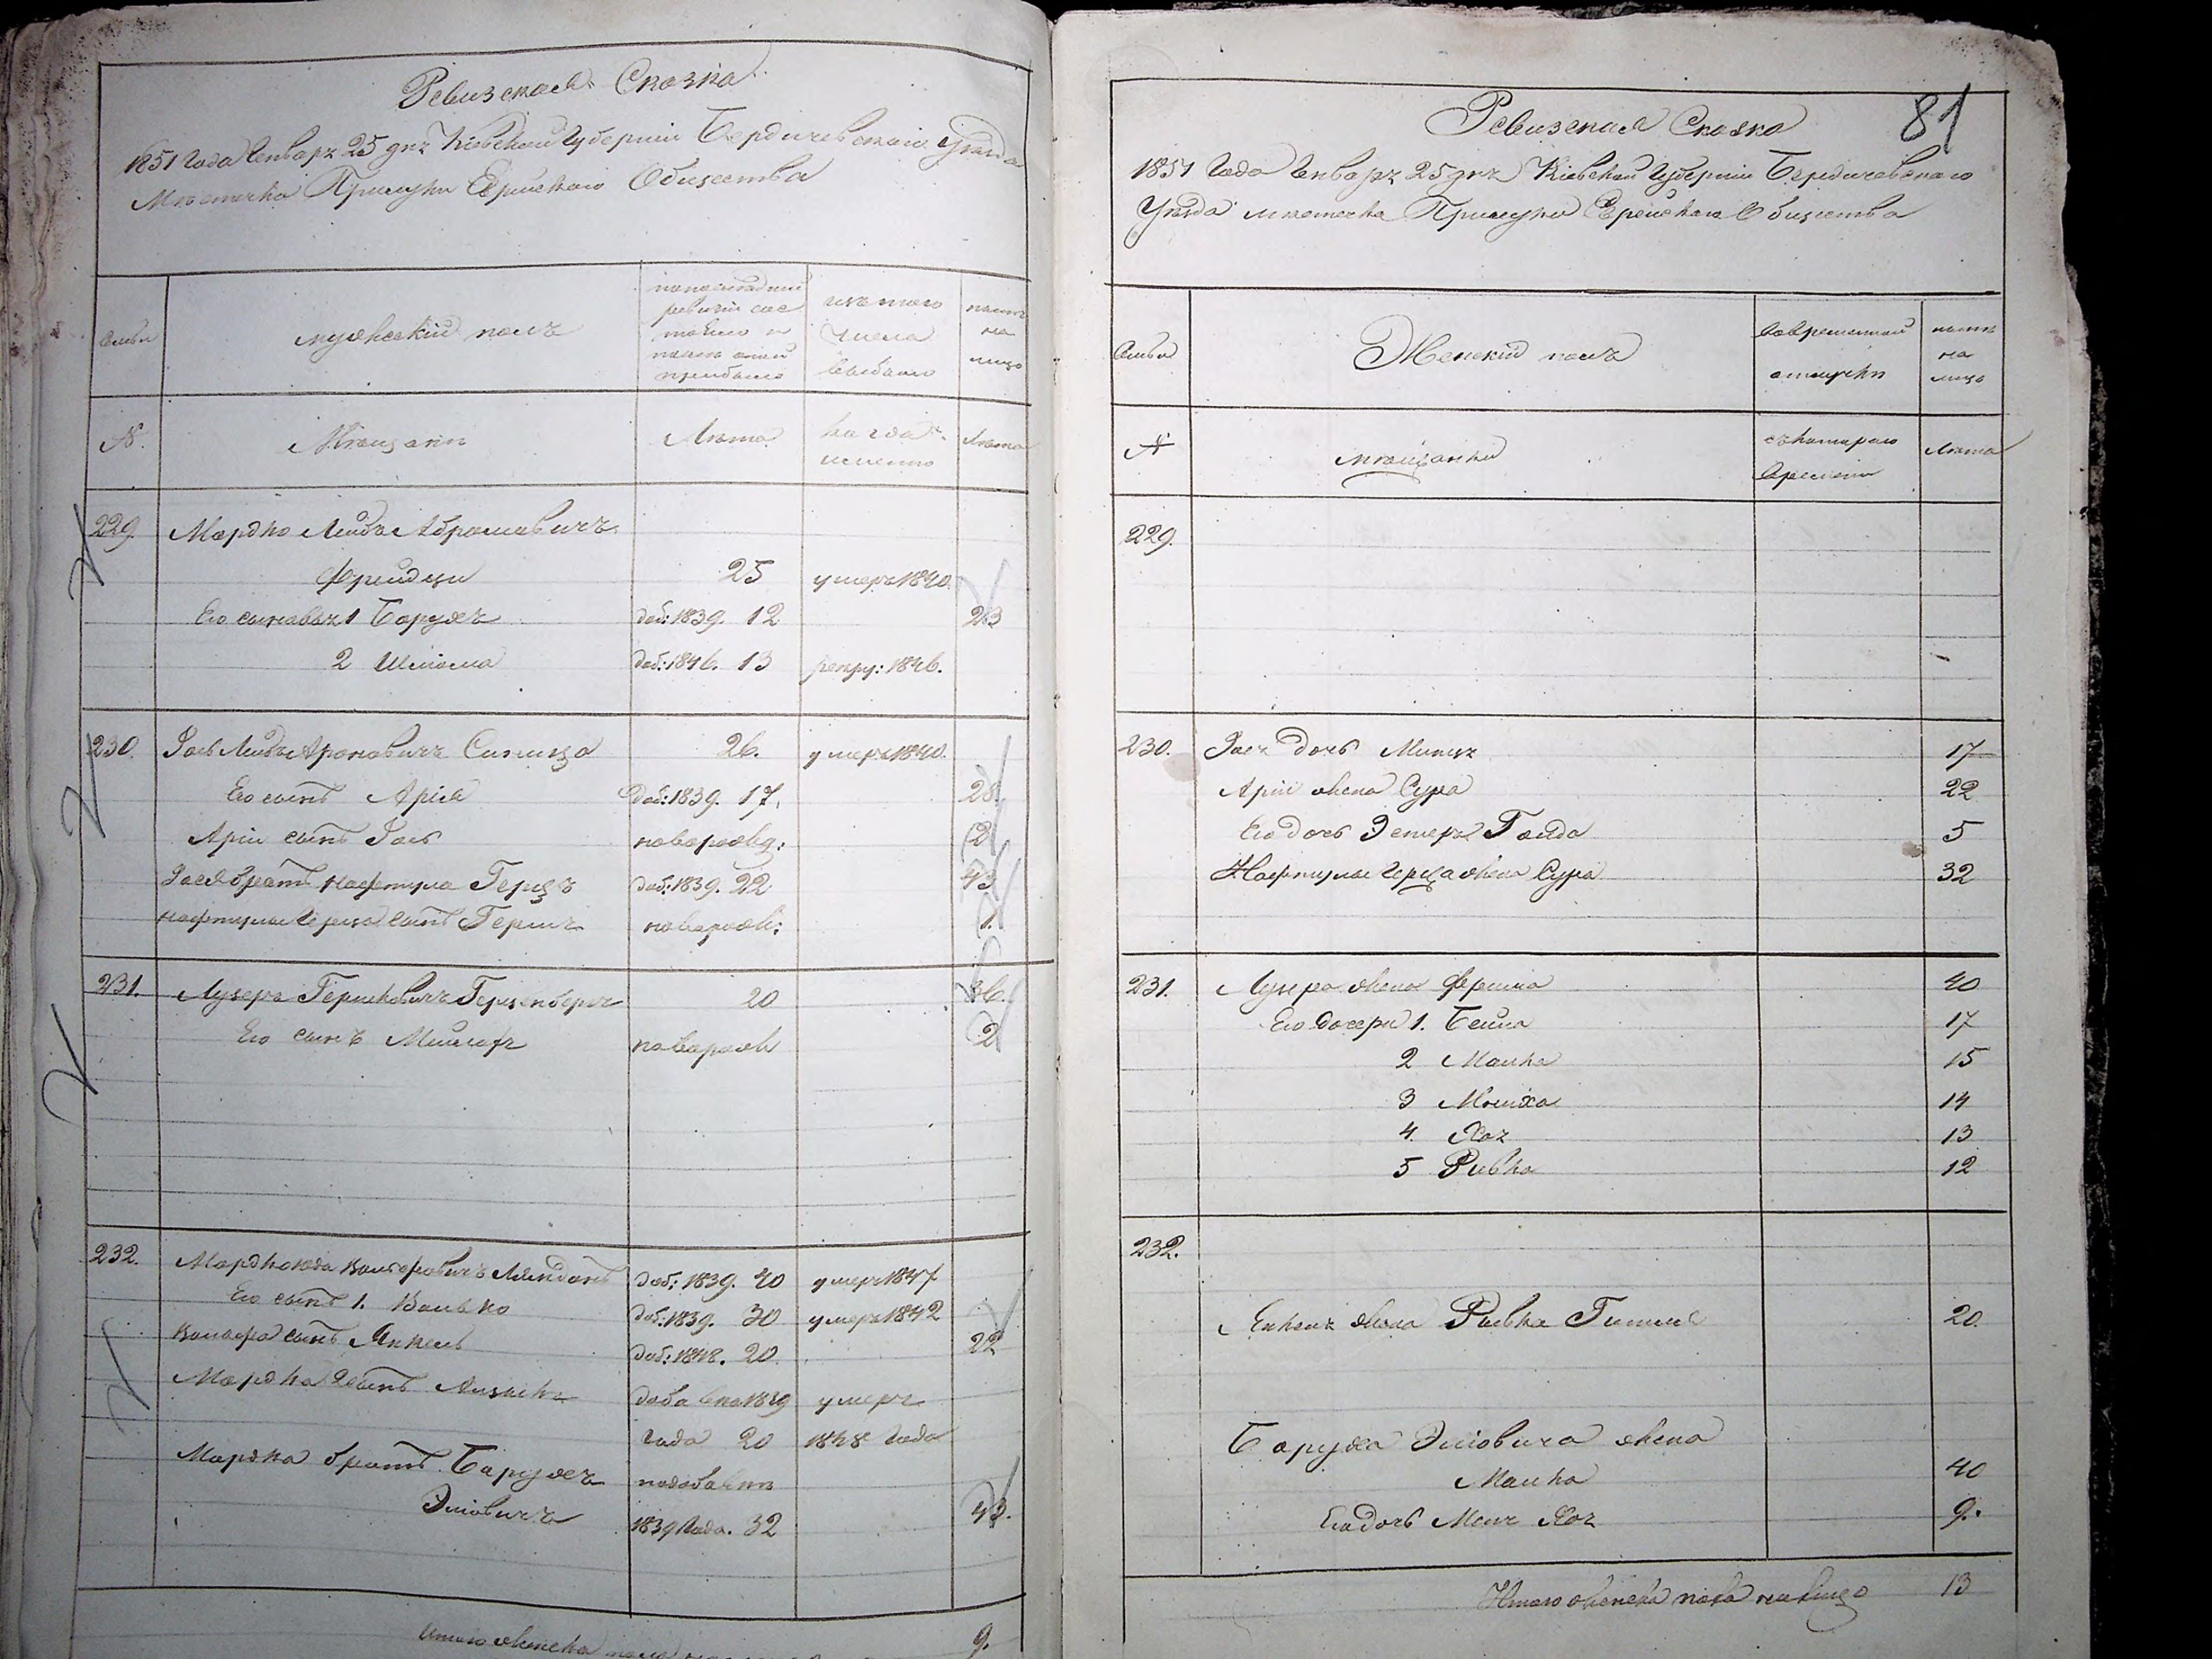 Ревизская Сказка
1851 Года Генваря 25 дня Кіевской Губерніи Бердичевскаго Уезда
Местечка Прилуки Еврейскаго Общества
семьи
мужескій полъ
по последней
ревизіи сос
тояло и
после оной
прибыло
изъ того
числа
выбыло
ныне
на
лицо
№.
Мещане
Лета
когда
именно
Лета
229. Мардко Лейбъ Абрамовичъ
25 умеръ 1840.
Его сыновья 1 Барухъ доб: 1839. 12 23
2 Шліома доб: 1846. 13 рекру: 1846.
230. Іось Лейбъ Ароновичъ Синица 26. умеръ 1840.
Его сынъ Арія доб: 1839. 17. 28.
Аріи сынъ Іось новорожд: 2
Іося братъ Нафтула Герцъ доб: 1839. 22
Нафтулы Герца сынъ Гершъ новорожд: 1.
231. Лузеръ Гершковичъ Герценберг 20 36.
Его сынъ новорожд 2
232. Мардко Волфовичъ доб: 1839. 40 умеръ 1847
Его сынъ 1. Волько доб: 1839. 30 умеръ 1842
Вольфа сынъ Янкель доб: 1848. 20. 22
Мардка 2 сынъ добавле 1839 умеръ
года 20 1848 года
Мардка братъ Барухъ
Эліовичъ 1839 Года. 32 43.
9.
81
Ревизская Сказка
1851 Года Генваря 25 дня Кіевской Губерніи Бердичевскаго
Уезда местечка Прилуки Еврейскаго Общества
Семьи
Женскій полъ
во временной
отлучке
ныне
на
лицо
№
мещанки
съ котораго
времени
Лета
229.
230. Іося дочь 17
Аріи жена Сура 22
Его дочь Эстеръ Голда 5
Нафтулы Герца жена Сура 32
231. Лузера жена Фрейма 40
Его дочери 1. Бейла 17
2 Малка 15
3 14
4. Хая 13
5 Ривка 12
232.
Янкеля жена Ривка Гитля 20.
Баруха Эліовича жена
Малка 40
Его дочь Хая 9.
Итого женска пола на лицо 13